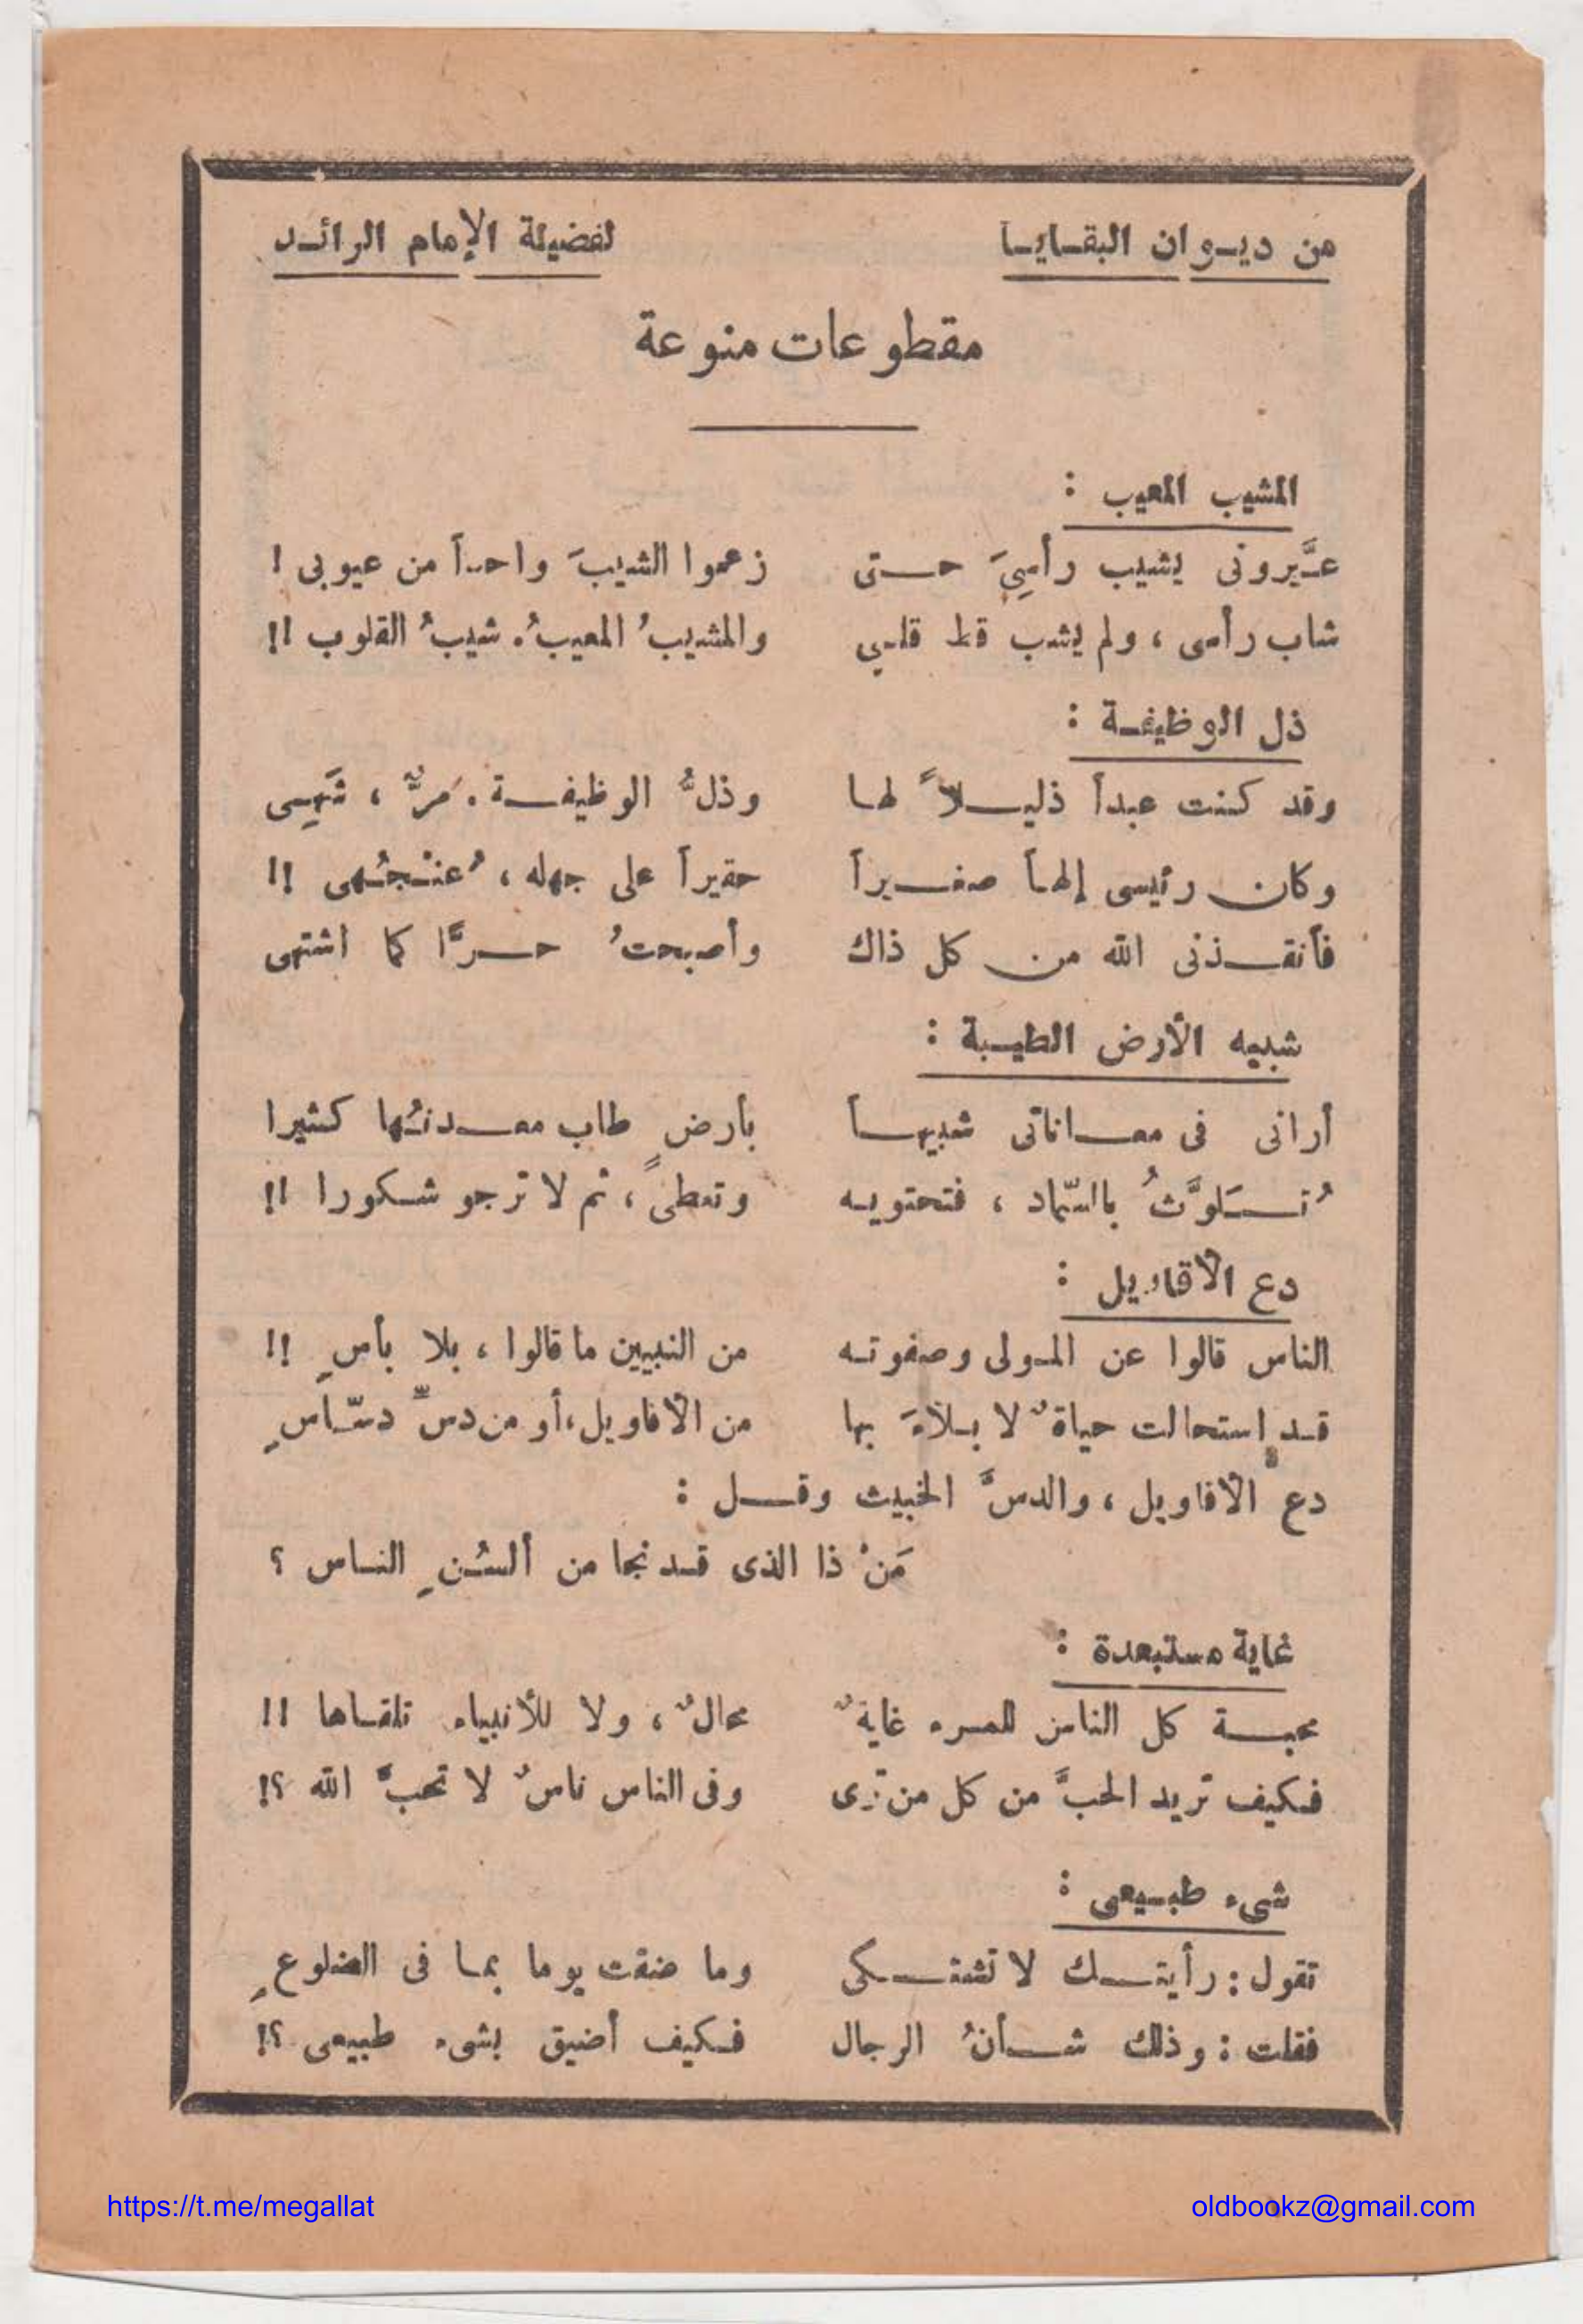 من ديوان البقايا لفضيلة الإمام الرائد
مقطوعات منوعة
المشيب المعيب :
عيَّرونى بشيب رأسِىَ حتى زعموا الشيبَ واحداً من عيوبى !
شاب رأسى ، ولم يشب قط قلبى والمشيبُ المعيبُ . شيبُ القلوب !!
ذل الوظيفة :
وقد كنت عبداً ذليلاً لها وذلُّ الوظيفة . مرٌّ ، شَهِى
وكان رئيسى إلهاً صغيراً حقيراً على جهله ، عُنْجُهى !!
فأنقذنى الله من كل ذاك وأصبحتُ حرًّا كما أشتهى
شبيه الأرض الطيبة :
أرانى فى معاناتى شبيهاً بأرضٍ طاب معدنُها كثيرا
تُلَوَّثُ بالسّماد ، فتحتويه وتعطى ، ثم لا ترجو شكورا !!
دع الأقاويل :
الناس قالوا عن المولى وصفوته من النبيين ما قالوا ، بلا بأسٍ !!
قد إستحالت حياةٌ لا بلاءَ بها من الأقاويل ، أو من دسِّ دسّاسٍ
دع الأقاويل ، والدسَّ الخبيث وقل :
مَنْ ذا الذى قد نجا من ألسُنِ الناس ؟
غاية مستبعدة :
محبة كل الناس للمرء غايةٌ محالٌ ، ولا للأنبياء تلقاها !!
فكيف تريد الحبَّ من كل من ترى وفى الناس ناسٌ لا تحبُّ الله ؟!
شىء طبيعى :
تقول : رأيتك لا تشتكى وما ضقت يوما بما فى الضلوعِ
فقلت : وذلك شأنُ الرجال فكيف أضيق بشىء طبيعى ؟!
https://t.me/megallat oldbookz@gmail.com